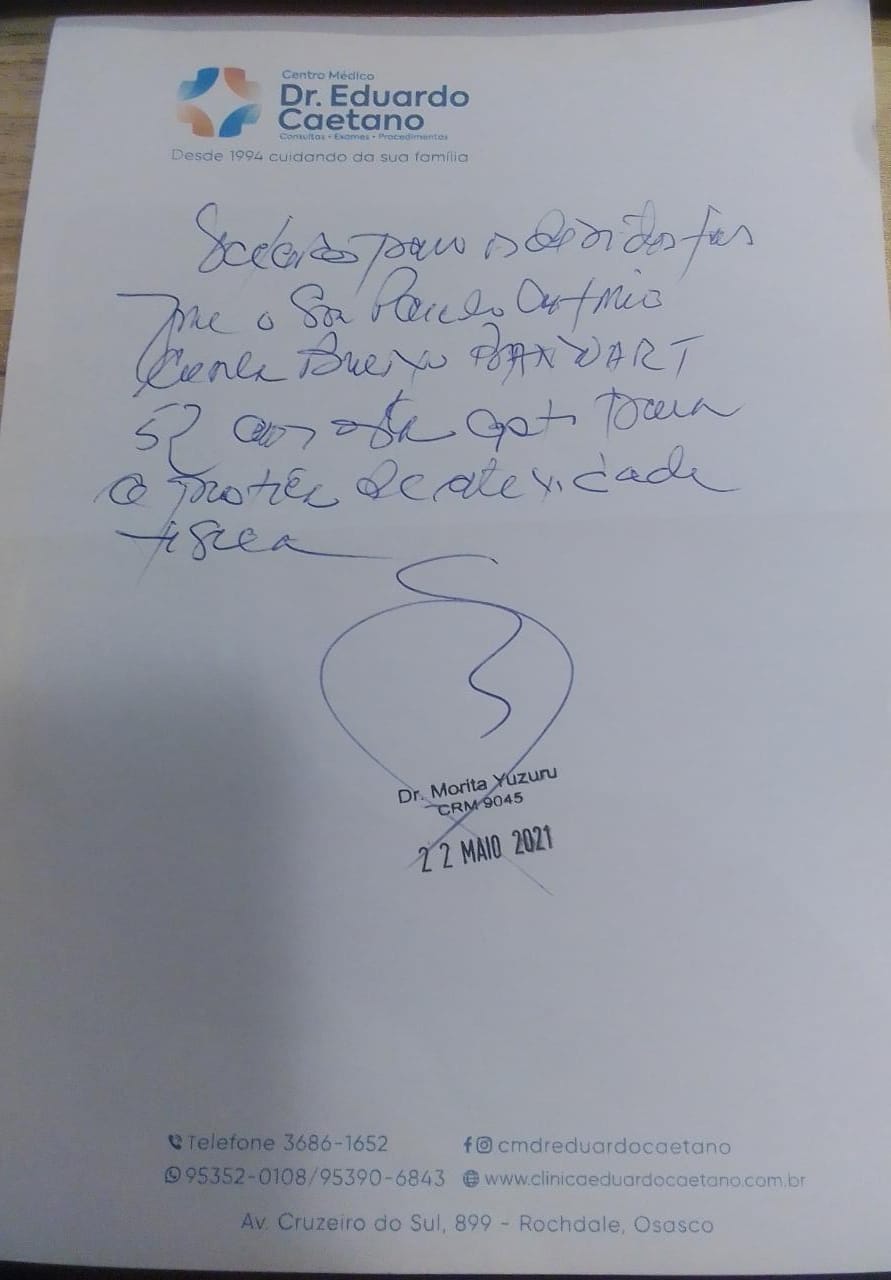 Centro Médico
Dr. Eduardo
Caetano
Consultas • Exames • Procedimentos
Desde 1994 cuidando da sua família
para os devidos fins
que o Sr. Antonio
52 anos está apto para
a prática de atividade
física
Dr. Morita Yuzuru
CRM 9045
22 MAIO 2021
Telefone 3686-1652
cmdreduardocaetano
95352-0108/95390-6843
www.clinicaeduardocaetano.com.br
Av. Cruzeiro do Sul, 899 - Rochdale, Osasco